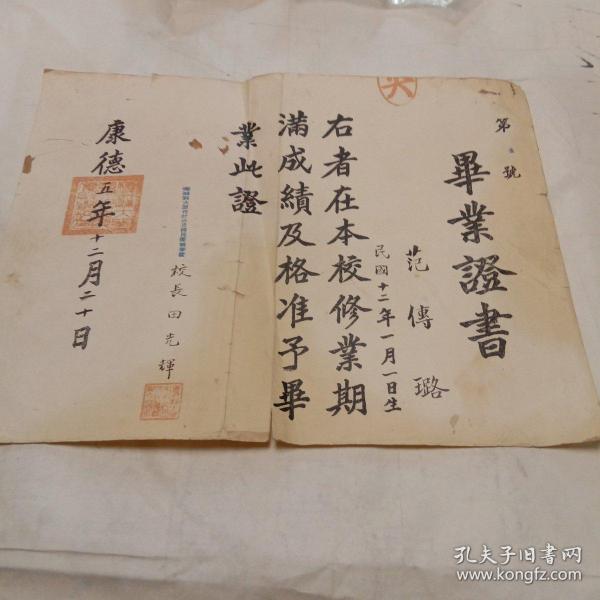 第 號
畢業證書
范傳璐
民國十二年一月一日生
右者在本校修業期
滿成績及格准予畢
業此證
校長田克輝
康德五年十二月二十日
孔夫子旧书网
www.kongfz.com